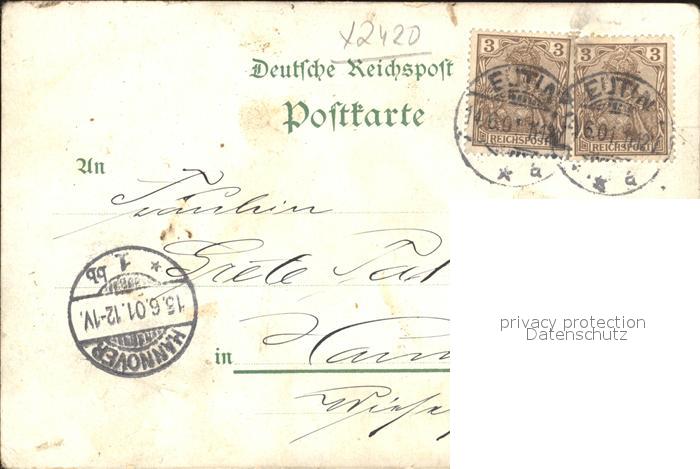 x2420
3 3 3 3
Deutsche Reichspost
EUTIN EUTIN
Postkarte
REICHSPOST REICHSPOST
* a * a
An
Fräulein
* 1. bb
Grete
privacy protection
Datenschutz
15.6.01.12-1V.
HANNOVER
in